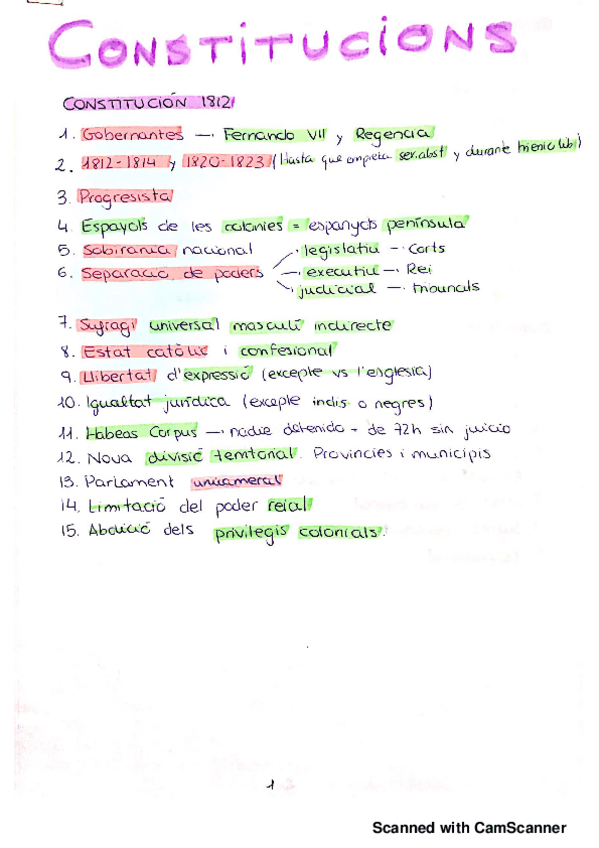 CONSTITUCIONS
CONSTITUCIÓN 1812
1. Gobernantes → Fernando VII y Regencia
2. 1812-1814 y 1820-1823 (Hasta que empieza sex.abst y durante trienio lib)
3. Progresista
4. Espayols de les colonies = espanyols península
5. Sobirania nacional
6. Separació de poders
legislatiu → Corts
executiu → Rei
judicial → tribunals
7. Sufragi universal masculí indirecte
8. Estat catòlic i confesional
9. Llibertat d'expressió (excepte vs l'esglesia)
10. Igualtat jurídica (excepte indis o negres)
11. Habeas Corpus → nadie detenido + de 72h sin juicio
12. Nova divisió territorial. Provincies i municipis
13. Parlament unicameral
14. Limitació del poder reial
15. Abolició dels privilegis colonials.
1
Scanned with CamScanner